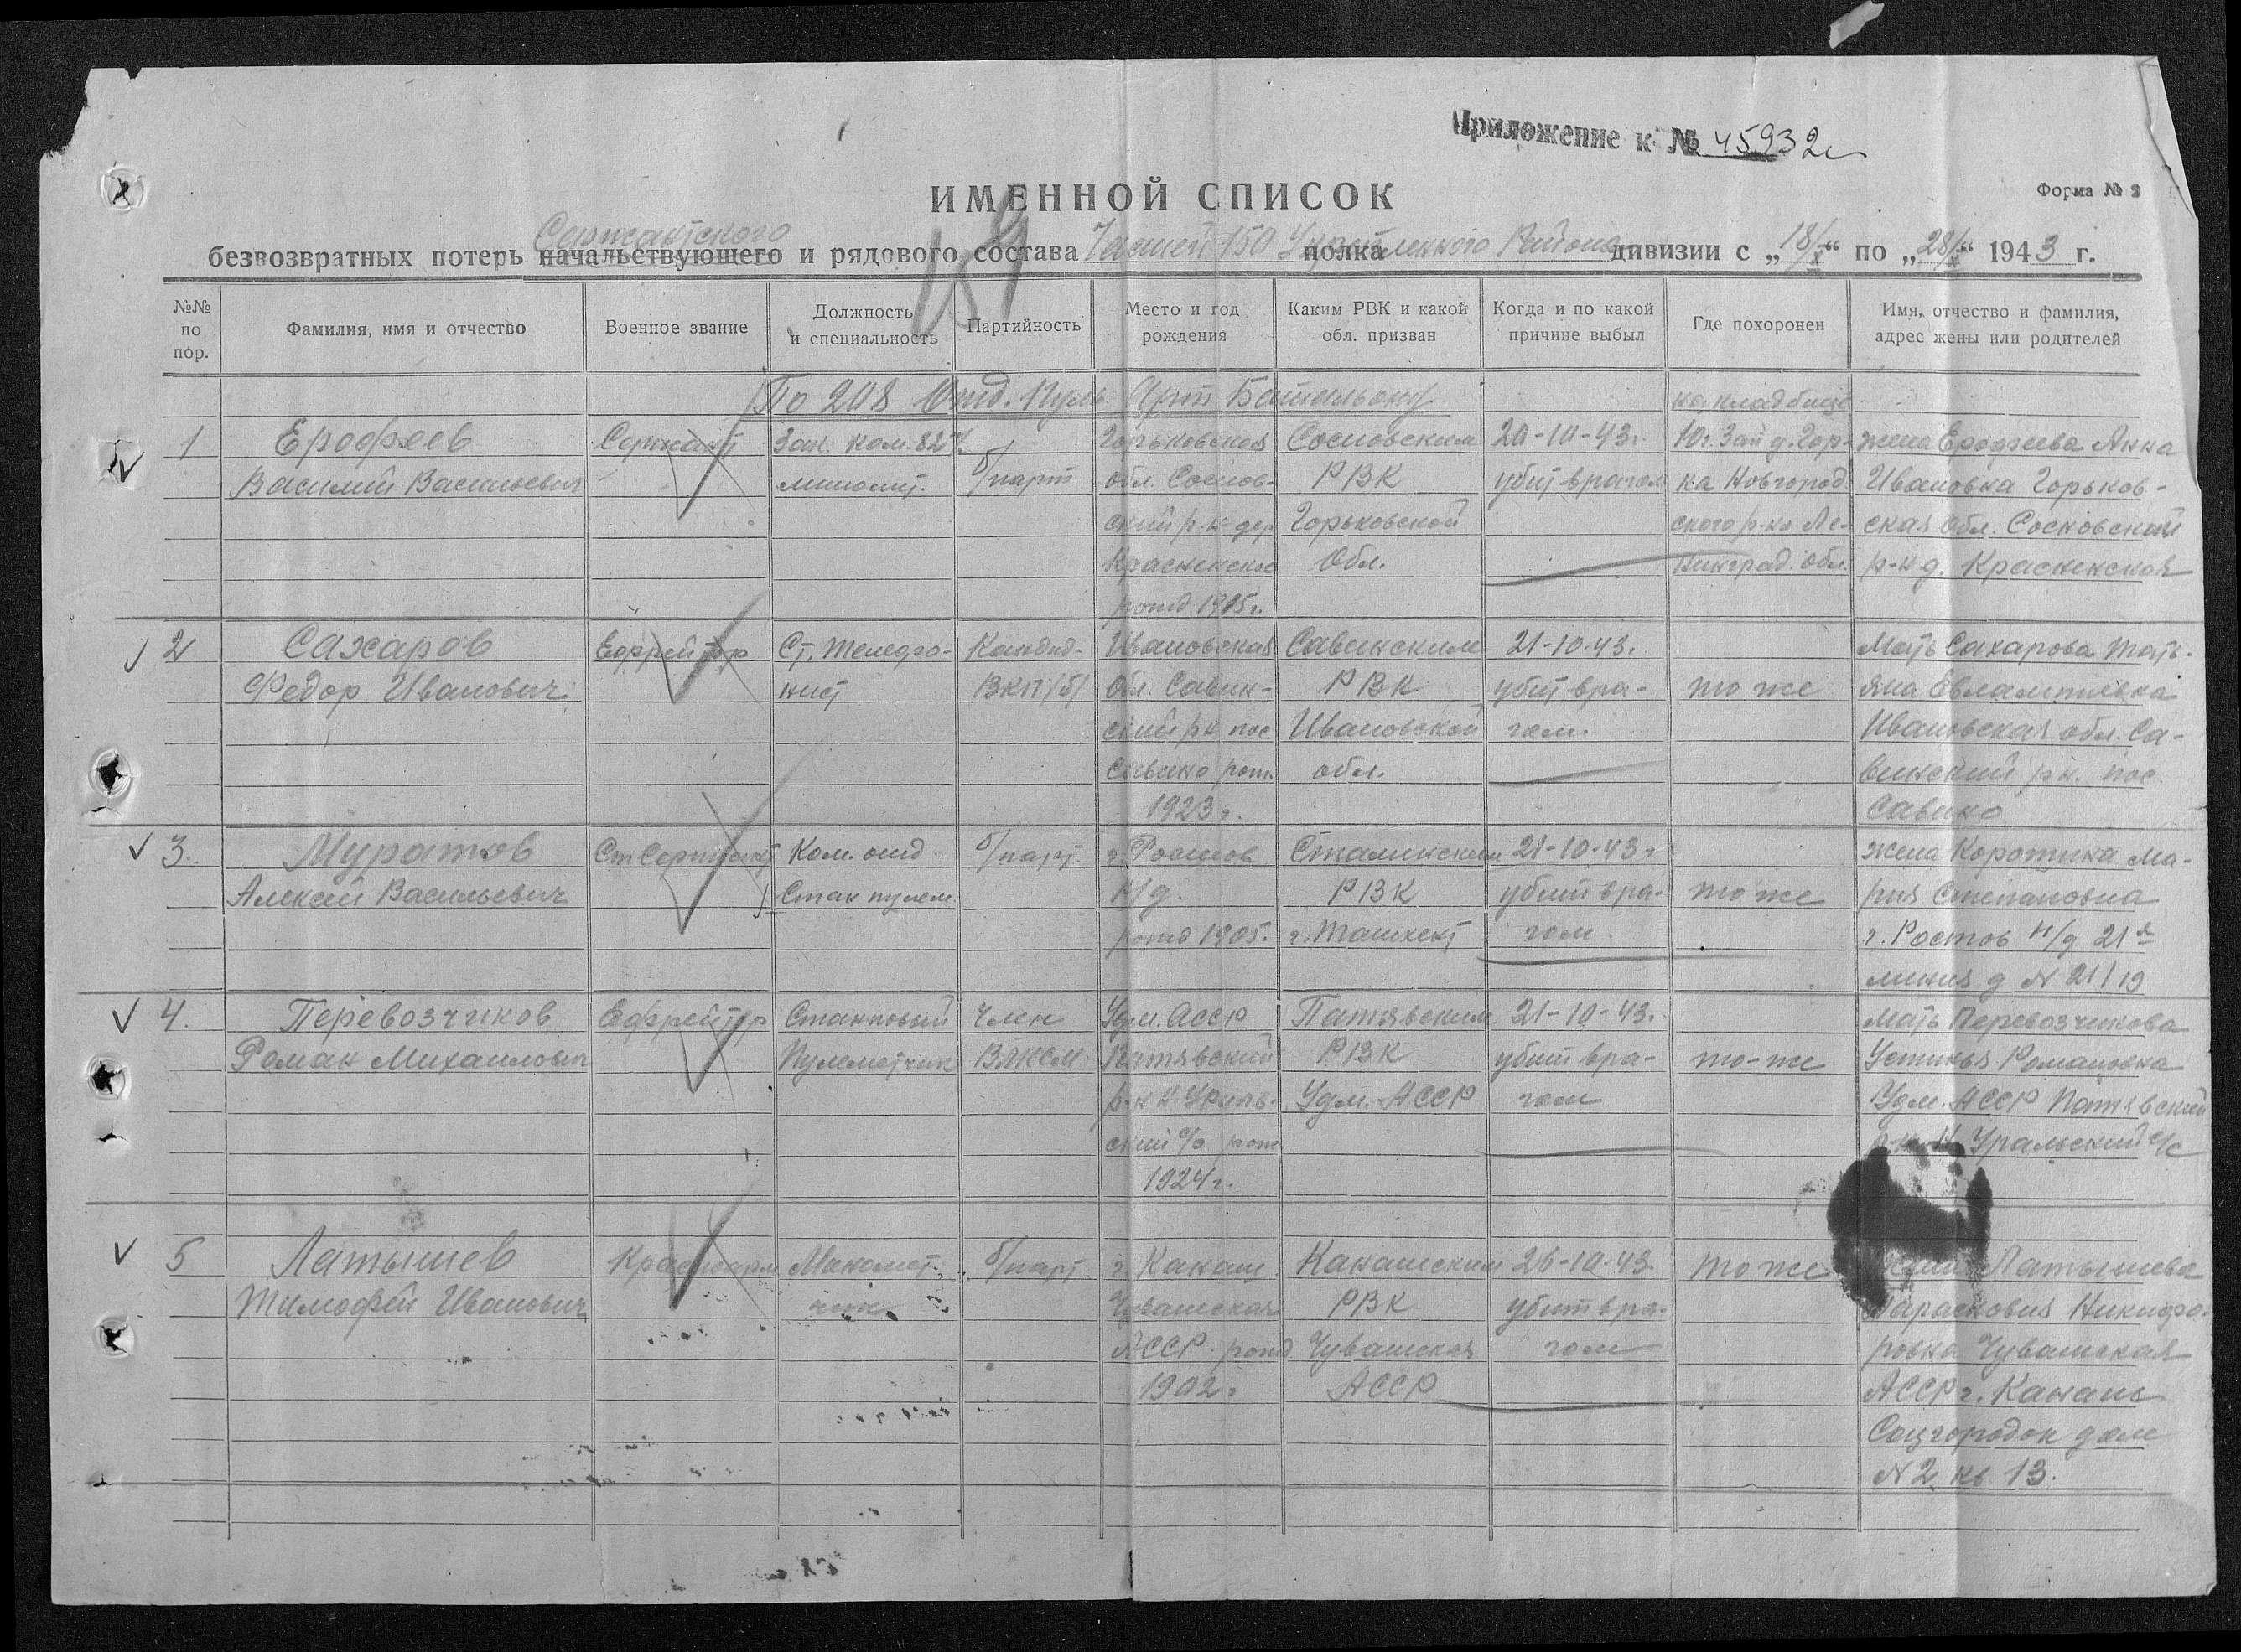 Приложение к № 45932с
ИМЕННОЙ СПИСОК
Форма № 2
Сержантского
безвозвратных потерь начальствующего и рядового состава Частей 150 Укрепленного Района полка дивизии с „18/X“ по „28/X“ 1943 г.
№№ по пор.
Фамилия, имя и отчество
Военное звание
Должность и специальность
Партийность
Место и год рождения
Каким РВК и какой обл. призван
Когда и по какой причине выбыл
Где похоронен
Имя, отчество и фамилия, адрес жены или родителей
По 208 Отд. Пуль. Арт Батальону
1
Ерофеев
Василий Васильевич
Сержант
Зам. ком. 82
миномет.
б/парт
Горьковская
обл. Соснов-
ский р-н дер
рожд 1905 г.
Сосновским
РВК
Горьковской
Обл.
20-10-43 г.
убит врагом
на кладбище
Ю.г. Зап д. Гор-
ка Новгород
ского р-на Ле-
нинград. обл.
жена Ерофеева Анна
Ивановна Горьков-
ская обл. Сосновский
р-н д.
2
Сахаров
Федор Иванович
Ефрейтор
Ст. телефо-
нист
Кандид.
ВКП/б/
Ивановская
обл. Савин-
ский р-н пос.
Савино рож.
1923 г.
Савинским
РВК
Ивановской
обл.
21-10-43.
убит вра-
гом.
то же
Мать Сахарова Тать-
яна Евлампиевна
Ивановская обл. Са-
винский р-н. пос.
Савино
3.
Муратов
Алексей Васильевич
Ст Сержант
Ком. отд
Стан пулем.
б/парт.
г. Ростов
н/д.
рожд 1905.
Сталинским
РВК
г. Ташкент
21-10-43 г
убит вра-
гом.
то же
жена Коротина Ма-
рия Степановна
г. Ростов н/д 21я
линия д N 21/19
4.
Перевозчиков
Роман Михаилович
Ефрейтор
Станковый
Пулеметчик
Член
ВЛКСМ
Удм. АССР
Пытявский
р-н Н Ураль-
ский с/с рожд
1924 г.
Патявским
РВК
Удм. АССР
21-10-43.
убит вра-
гом
то-же
Мать Перевозчикова
Устинья Романовна
Удм. АССР Патявский
р-н Н Уральский с/с
5
Латышев
Тимофей Иванович
Красноарм
Миномет-
чик
б/парт
г. Канаш
Чувашская
АССР рожд
1902 г.
Канашским
РВК
Чувашская
АССР
26-10-43.
убит вра-
гом
то же
Латышева
Парасковия Никифо-
ровна Чувашская
АССР г. Канаш
Соцгородок дом
N 2 кв 13.